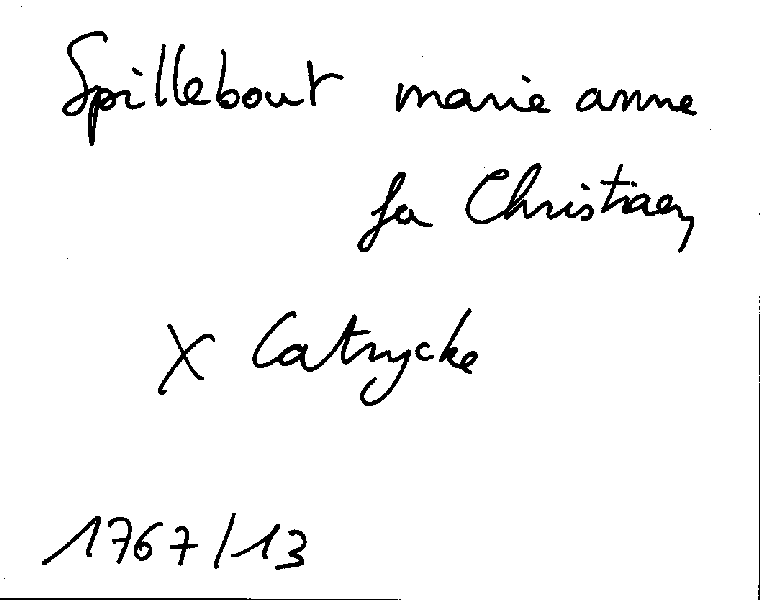 Spillebout marie anne
fa Christiaen
X Catrycke
1767/13